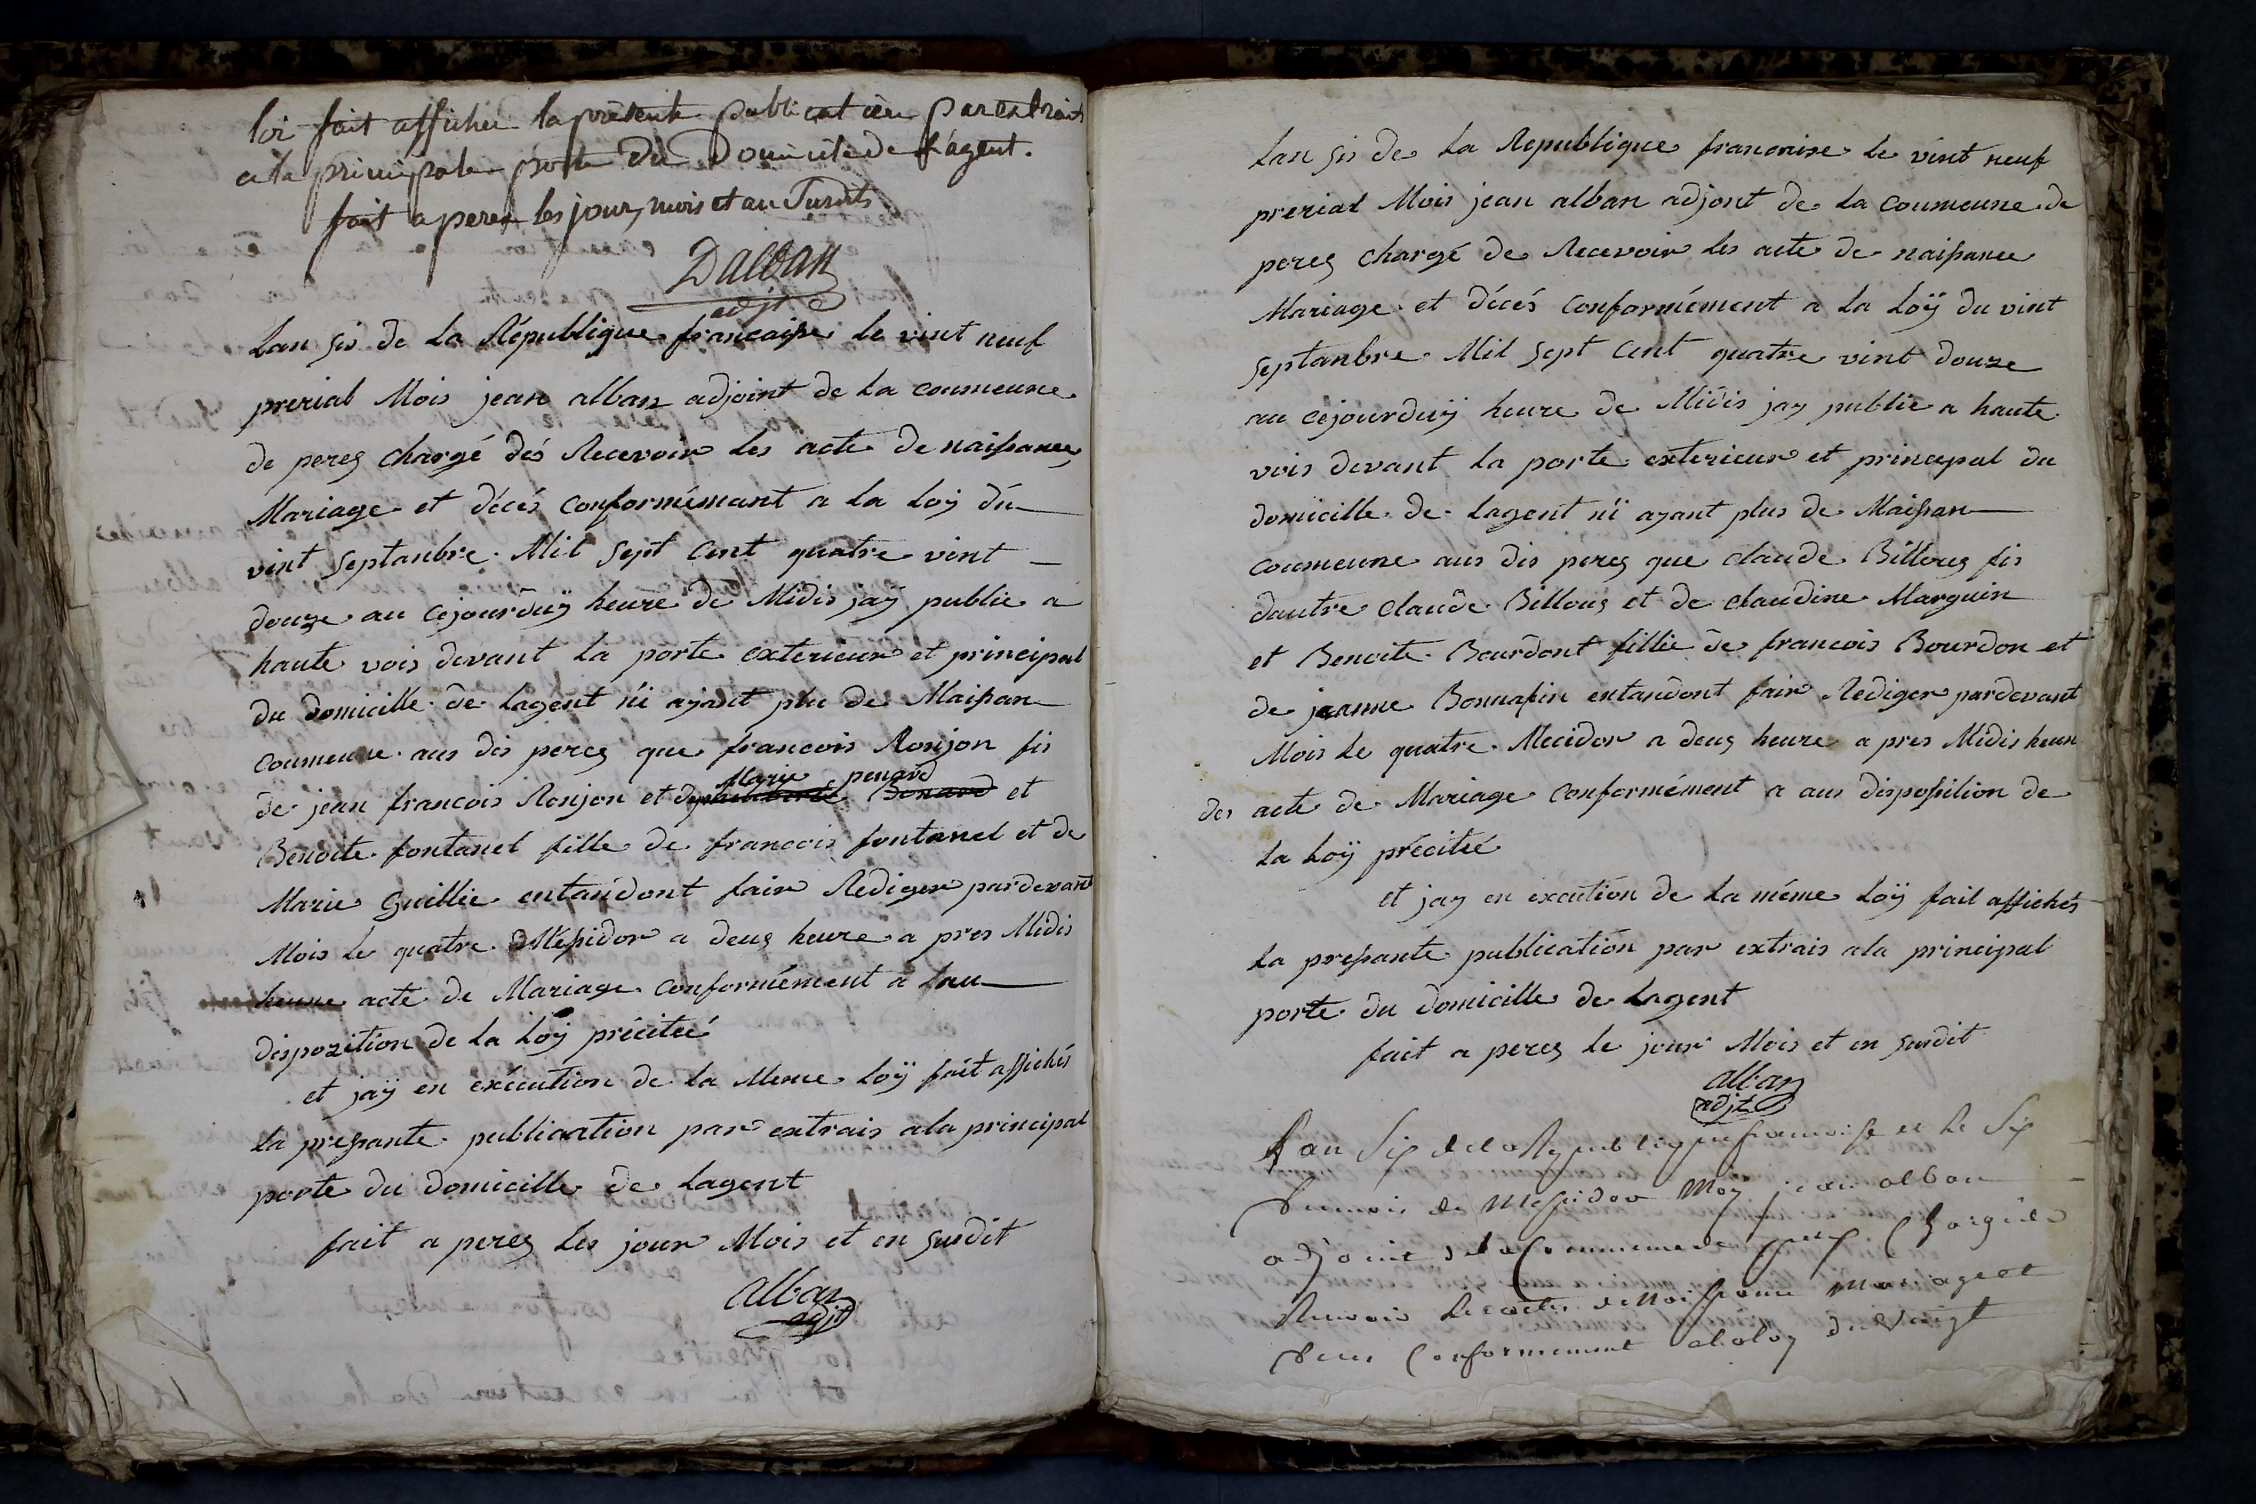 loi fait afficher la présente publication par extrait
a la principale porte du Domicile de l'agent.
fait a perex les jour, mois et an Susdits
Dalban
adjt
Lan sis de La République francaise le vint neuf
prerial Mois jean alban adjoint de La coumeune
de perex chargé dés Recevoir les acte de naissance
Mariage et décés conformémant a La Loÿ du
vint septanbre Mil sept cent quatre vint
douze au cejourduÿ heure de Midis jaÿ publie a
haute vois devant La porte exterieur et principal
du domicille de Lagent n'i ayant plu de Maissan
coumeune aus dis perex que francois Ronjon fis
de jean francois Ronjon et de Marie penard et
Benoite fontanel fille de francois fontanel et de
Marie Guillie entandont fair Rediger pardevant
Mois le quatre Messidor a deux heure a pres Midis
heure acte de Mariage conformément a lau
disposition de la Loÿ précitée
et jaÿ en exécution de La Meme Loÿ fait affichés
La pressante publication par extrais ala principal
porte du domicille de Lagent
fait a perex Les jour Mois et en susdit
alban
adjt
Lan sis de La Republique francaise Le vint neuf
prerial Mois jean alban adjont de La coumeune de
perex chargé de Recevoir les acte de naissance
Mariage et décés conformément a La Loÿ du vint
septanbre Mil sept cent quatre vint douze
au cejourduÿ heure de Midis jay publie a haute
vois devant La porte exterieur et principal du
domicille de Lagent n'i ayant plus de Maissan
coumeune aus dis perex que claude Billoux fis
dautre claude Billoux et de claudine Marguin
et Benoite Bourdont fillie de francois Bourdon et
de jeanne Bonnassin entandont fair Rediger pardevant
Mois Le quatre Mecidor a deux heure a pres Midis heure
des acte de Mariage conformément a aus disposition de
La Loÿ précitée
et jay en excution de La méme Loÿ fait affichés
La pressante publication par extrais ala principal
porte du domicille de Lagent
fait a perex le jour Mois et en susdit
alban
adjt
Lan Six dela Republique francoise et le Six
du mois de Messidor Moy jean alban
adjoint dela Commune de perex Chargé de
Recevoir les actes de Naissance Mariage et
deces Conformement ala loy du Vingt